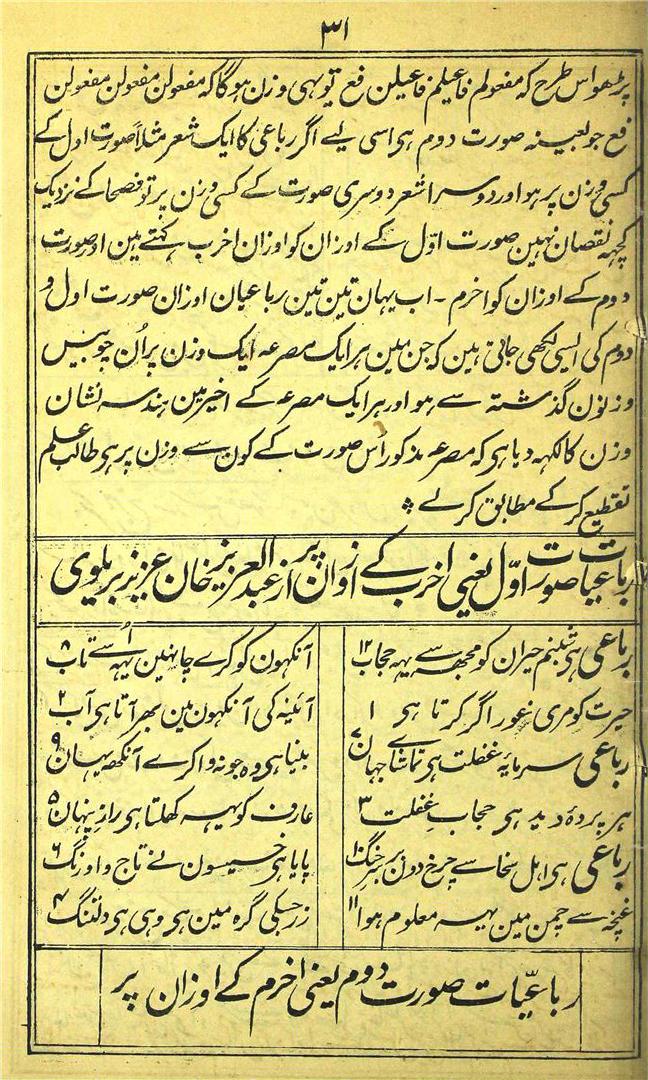 ۳۱
پڑھو اس طرح کہ مفعولم فاعیلم فاعیلن فع تو یہی وزن ہوگا کہ مفعولن مفعولن مفعولن
فع جو بعینہ صورت دوم ہی اسی لیے اگر رباعی کا ایک شعر مثلاً صورت اول کے
کسی وزن پر ہو اور دوسرا شعر دوسری صورت کے کسی وزن پر تو فصحا کے نزدیک
کچہہ نقصان نہین صورت اوّل کے اوزان کو اوزان اخرب کہتے ہین اور صورت
دوم کے اوزان کو اخرم ۔ اب یہان تین تین رباعیان اوزان صورت اول و
دوم کی ایسی لکھی جاتی ہین کہ جن مین ہر ایک مصرعہ ایک وزن پر اُن چوبیس
وزنون گذشتہ سے ہو اور ہر ایک مصرعہ کے اخیر مین ہندسہ نشان
وزن کا لکہہ دیا ہی کہ مصرعہ مذکور اس صورت کے کون سے وزن پر ہی طالب علم
تقطیع کر کے مطابق کر لے
رباعیات صورت اوّل یعنی اخرب کے اوزان پر از عبد العزیز خان عزیز بریلوی
رباعی ہی شبنم حیران کو مجھہ سے یہہ حجاب ۱۲
آنکھون کو کرے چاہئین یہہ اُسے تاب ۸
حیرت کو مری غور اگر کرتا ہی ۱
آئینہ کی آنکھون مین بھر آتا ہی آب ۲
رباعی سرمایۂ غفلت ہی تماشاے جہان ۷
بینا ہی وہ جو نہ وا کرے آنکھہ یہان ۹
ہر پردۂ دید ہی حجاب غفلت ۳
عارف کو یہہ کھلتا ہی راز پنہان ۵
رباعی ہی اہل سخا سے چرخ دون بر سر جنگ ۱۰
پایا ہی خسیسون نے تاج و اورنگ ۶
غنچہ سے چمن مین یہہ معلوم ہوا ۱۱
زر جسکی گرہ مین ہی وہی ہی دلتنگ ۴
رباعیّات صورت دوم یعنی اخرم کے اوزان پر